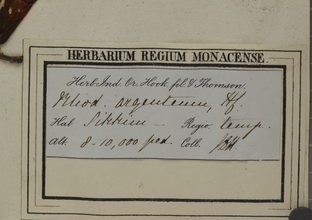 HERBARIUM REGIUM MONACENSE.
Herb. Ind. Or. Hook. fil. & Thomson.
Rhod. argenteum, Hf.
Hab. Sikkim — Regio temp.
Alt. 8-10,000 ped. Coll. JDH